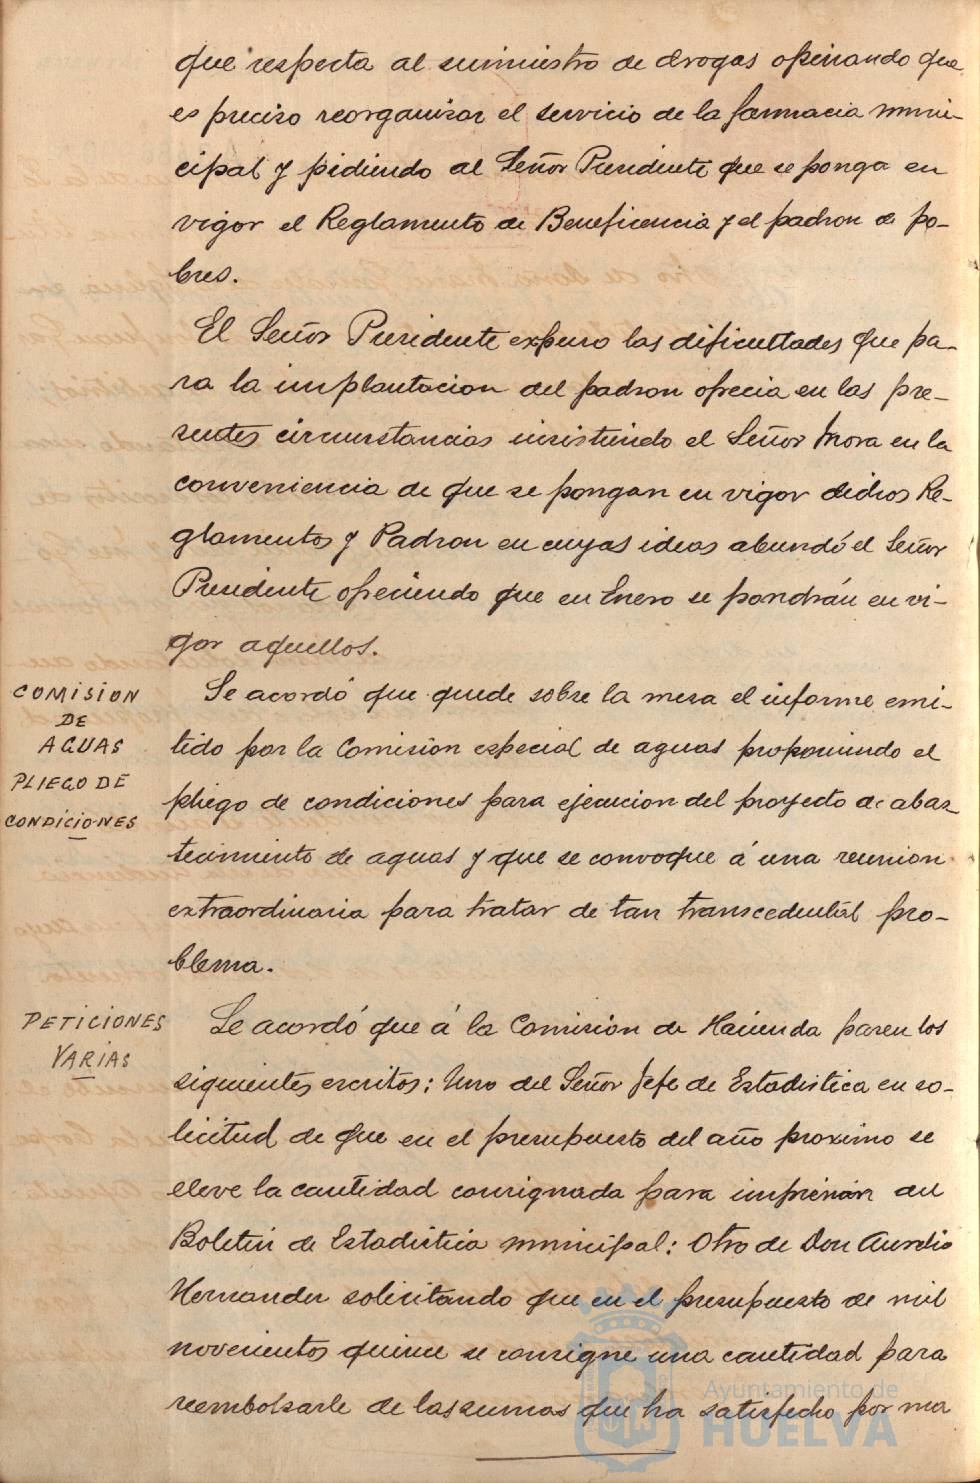 que respecta al suministro de drogas opinando que
es preciso reorganizar el servicio de la farmacia muni-
cipal y pidiendo al Señor Presidente que se ponga en
vigor el Reglamento de Beneficencia y el padron de po-
bres.
El Señor Presidente expuso las dificultades que pa-
ra la implantacion del padron ofrecia en las pre-
sentes circunstancias insistiendo el Señor Mora en la
conveniencia de que se pongan en vigor dichos Re-
glamentos y Padron en cuyas ideas abundó el Señor
Presidente ofreciendo que en Enero se pondrán en vi-
gor aquellos.
COMISION
DE
AGUAS
PLIEGO DE
CONDICIONES
Se acordó que quede sobre la mesa el informe emi-
tido por la Comision especial de aguas proponiendo el
pliego de condiciones para ejecucion del proyecto de abas-
tecimiento de aguas y que se convoque á una reunion
extraordinaria para tratar de tan transcedental pro-
blema.
PETICIONES
VARIAS
Se acordó que á la Comision de Hacienda pasen los
siguientes escritos: Uno del Señor Jefe de Estadistica en so-
licitud de que en el presupuesto del año proximo se
eleve la cantidad consignada para impresión del
Boletin de Estadistica municipal: Otro de Don Aurelio
Hernandez solicitando que en el presupuesto de mil
novecientos quince se consigne una cantidad para
reembolsarle de las sumas que ha satisfecho por ma
Ayuntamiento de
HUELVA